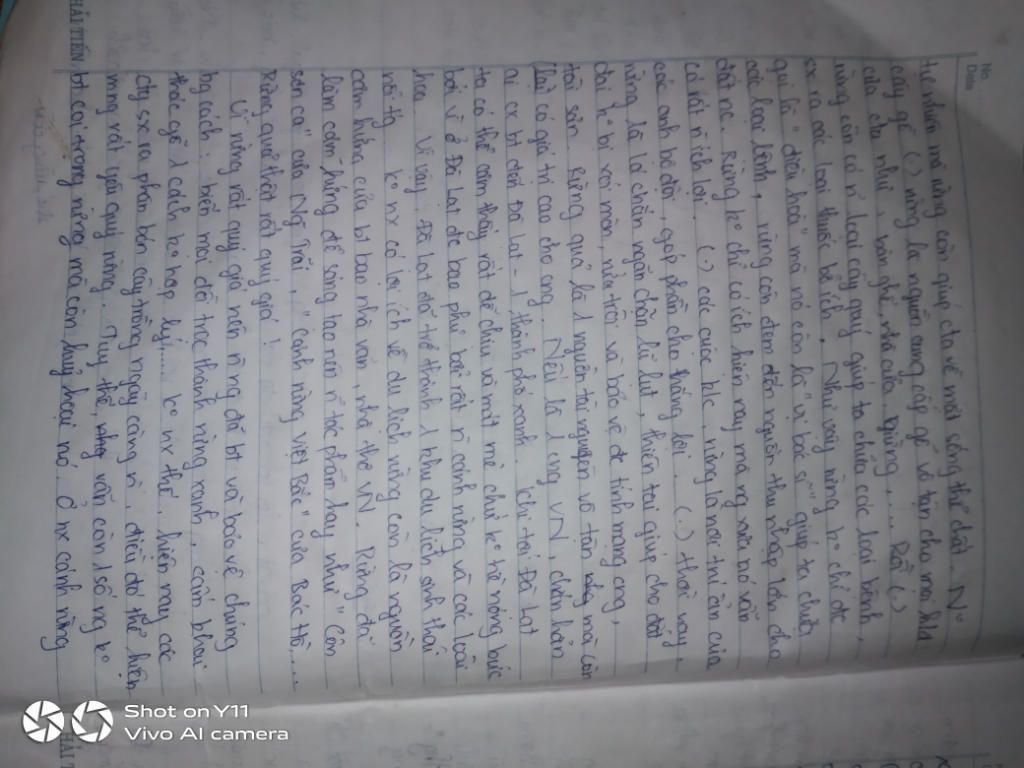 No.
Date
tự nhiên mà rừng còn giúp ta về mặt sống thể chất. N°
cây gỗ (.) rừng là nguồn cung cấp gỗ vô tận cho mọi
của cta như, bàn ghế, nhà cửa, giường, .... Rồi (.)
rừng còn có n' loại cây quý giúp ta chữa các loại bệnh,
sx ra các loại thuốc bổ ích. Như vậy rừng k° chỉ đc
gọi là "điều hoà" mà nó còn là "vị bác sĩ" giúp ta chữa
các loại bệnh, rừng còn đem đến nguồn thu nhập lớn cho
đất nc. Rừng k° chỉ có ích hiện nay mà ng xưa nó vẫn
có rất n' ích lợi. (.) các cuộc k/c, rừng là nơi trú ẩn của
các anh bộ đội, góp phần cho thắng lợi. (.) thời nay,
rừng là lá chắn ngăn chặn lũ lụt, thiên tai giúp cho đất
đai k° bị xói mòn, nứa trôi và bảo vệ đc tính mạng cng,
tài sản. Rừng quả là 1 nguồn tài nguyên vô tận mà còn
có giá trị cao cho cng. Nếu là 1 cng VN, chắn hẳn
ai cx bt đến Đà Lạt - 1 thành phố xanh. Khi tới Đà Lạt
ta có thể cảm thấy rất dễ chịu và mát mẻ chứ k° hề nóng bức
bởi vì ở Đà Lạt đc bao phủ bởi rất n' cánh rừng và các loài
hoa. Vì vậy, Đà Lạt đã trở thành 1 khu du lịch sinh thái
nổi tg. K° nx có lợi ích về du lịch rừng còn là nguồn
cảm hứng của bt bao nhà văn, nhà thơ VN. Rừng đã
làm cảm hứng để sáng tạo nên n' tác phẩm hay như "Côn
sơn ca" của Ng Trãi, "Cảnh rừng việt Bắc" của Bác Hồ,...
Rừng quả thật rất quý giá!
Vì rừng rất quý giá nên n' ng đã bt và bảo vệ chúng
bg cách: biến mọi đồi trọc thành rừng xanh, cấm khai
thác gỗ 1 cách k° hợp lý,... k° nx thế, hiện nay các
cty sx ra phân bón cây trồng ngày càng n', điều đó thể hiện
mng rất yêu quý rừng. Tuy thế, vẫn còn 1 số ng k°
bt coi trọng rừng mà còn huỷ hoại nó. Ở mx cánh rừng
HẢI TIẾN
Shot on Y11
Vivo AI camera